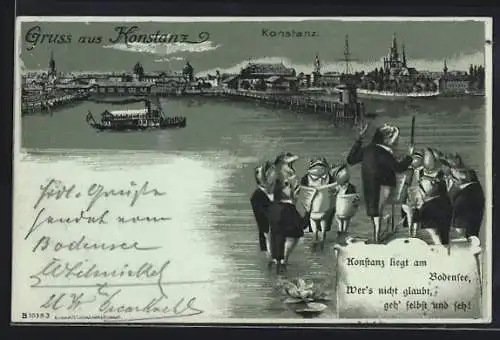 Gruss aus Konstanz
Konstanz.
Frdl. Grüße
sendet vom
Bodensee
Konstanz liegt am
Bodensee,
Wer's nicht glaubt,
geh' selbst und seh!